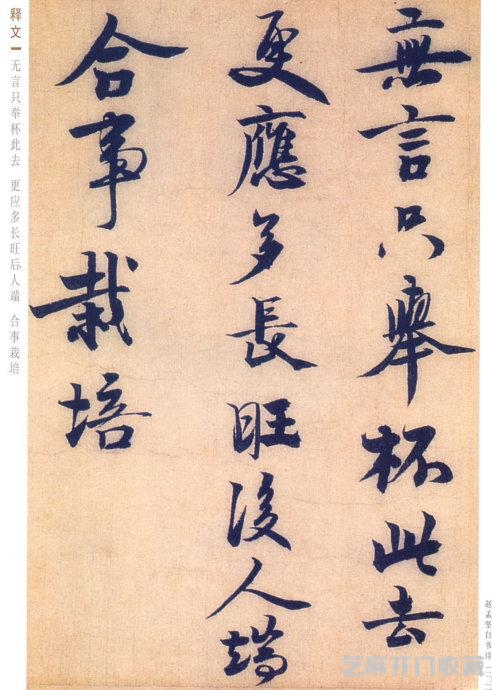 無言只舉杯此去
更應多長旺後人端
合事栽培
释文 无言只举杯此去 更应多长旺后人端 合事栽培
赵孟坚自书诗
艺麻开门收藏